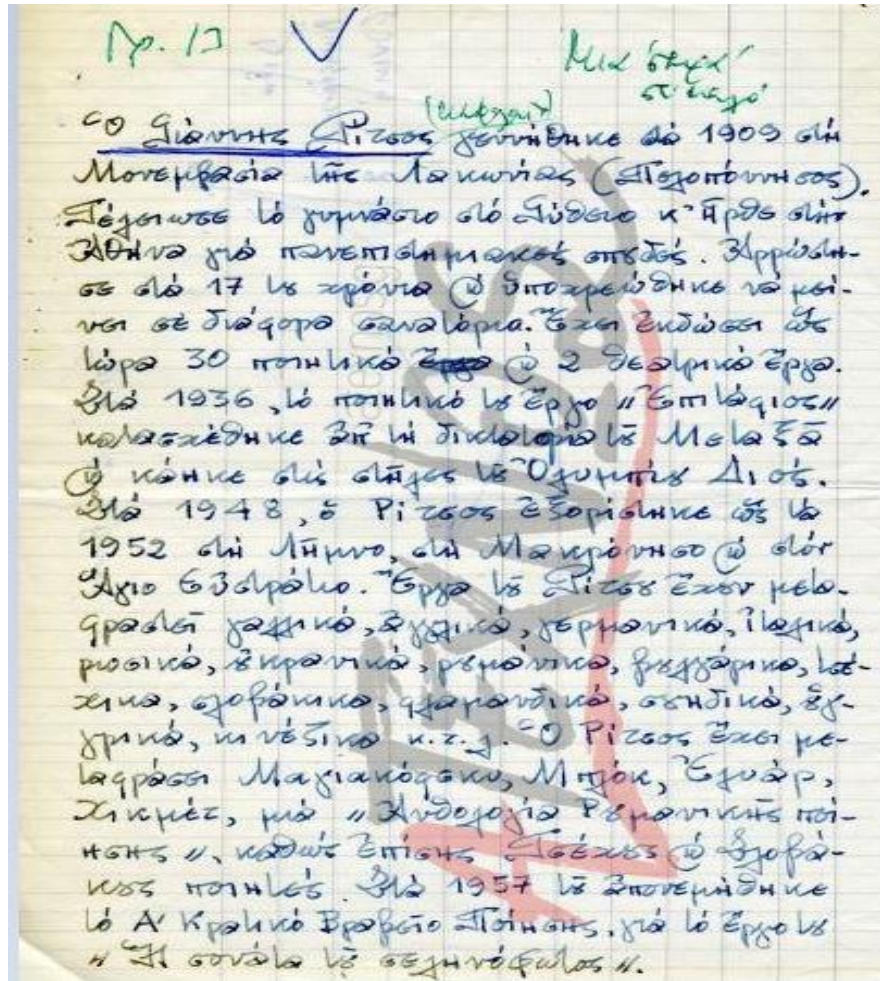 Πρ. 13
Μιὰ στήλη
στενὸ
(κεφαλ.)
Ὁ Γιάννης Ρίτσος γεννήθηκε στὰ 1909 στὴ
Μονεμβασία τῆς Λακωνίας (Πελοπόννησος).
Τέλειωσε τὸ γυμνάσιο στὸ Γύθειο κ' ἦρθε στὴν
Ἀθήνα γιὰ πανεπιστημιακὲς σπουδές. Ἀρρώστη-
σε στὰ 17 του χρόνια καὶ ὑποχρεώθηκε νὰ μεί-
νει σὲ διάφορα σανατόρια. Ἔχει ἐκδώσει ὣς
τώρα 30 ποιητικὰ καὶ 2 θεατρικὰ ἔργα.
Στὰ 1936, τὸ ποιητικό του ἔργο "Ἐπιτάφιος"
κατασχέθηκε ἀπ' τὴ δικτατορία τοῦ Μεταξᾶ
καὶ κάηκε στὶς στῆλες τοῦ Ὀλυμπίου Διός.
Στὰ 1948, ὁ Ρίτσος ἐξορίστηκε ὣς τὰ
1952 στὴ Λῆμνο, στὴ Μακρόνησο καὶ στὸν
Ἅγιο Εὐστράτιο. Ἔργα τοῦ Ρίτσου ἔχουν μετα-
φραστεῖ γαλλικά, ἀγγλικά, γερμανικά, ἰταλικά,
ρωσικά, οὐκρανικά, ρουμάνικα, βουλγάρικα, τσέ-
χικα, σλοβάκικα, φλαμανδικά, σουηδικά, οὑγ-
γρικά, κινέζικα κ.τ.λ. Ὁ Ρίτσος ἔχει με-
ταφράσει Μαγιακόφσκυ, Μπλόκ, Ἐλυάρ,
Χικμέτ, μιὰ "Ἀνθολογία Ρουμανικῆς ποί-
ησης", καθὼς ἐπίσης Τσέχους καὶ Σλοβά-
κους ποιητές. Στὰ 1957 τοῦ ἀπονεμήθηκε
τὸ Α' Κρατικὸ Βραβεῖο Ποίησης, γιὰ τὸ ἔργο του
"Ἡ σονάτα τοῦ σεληνόφωτος".
ΤΕΧΝΕΣ